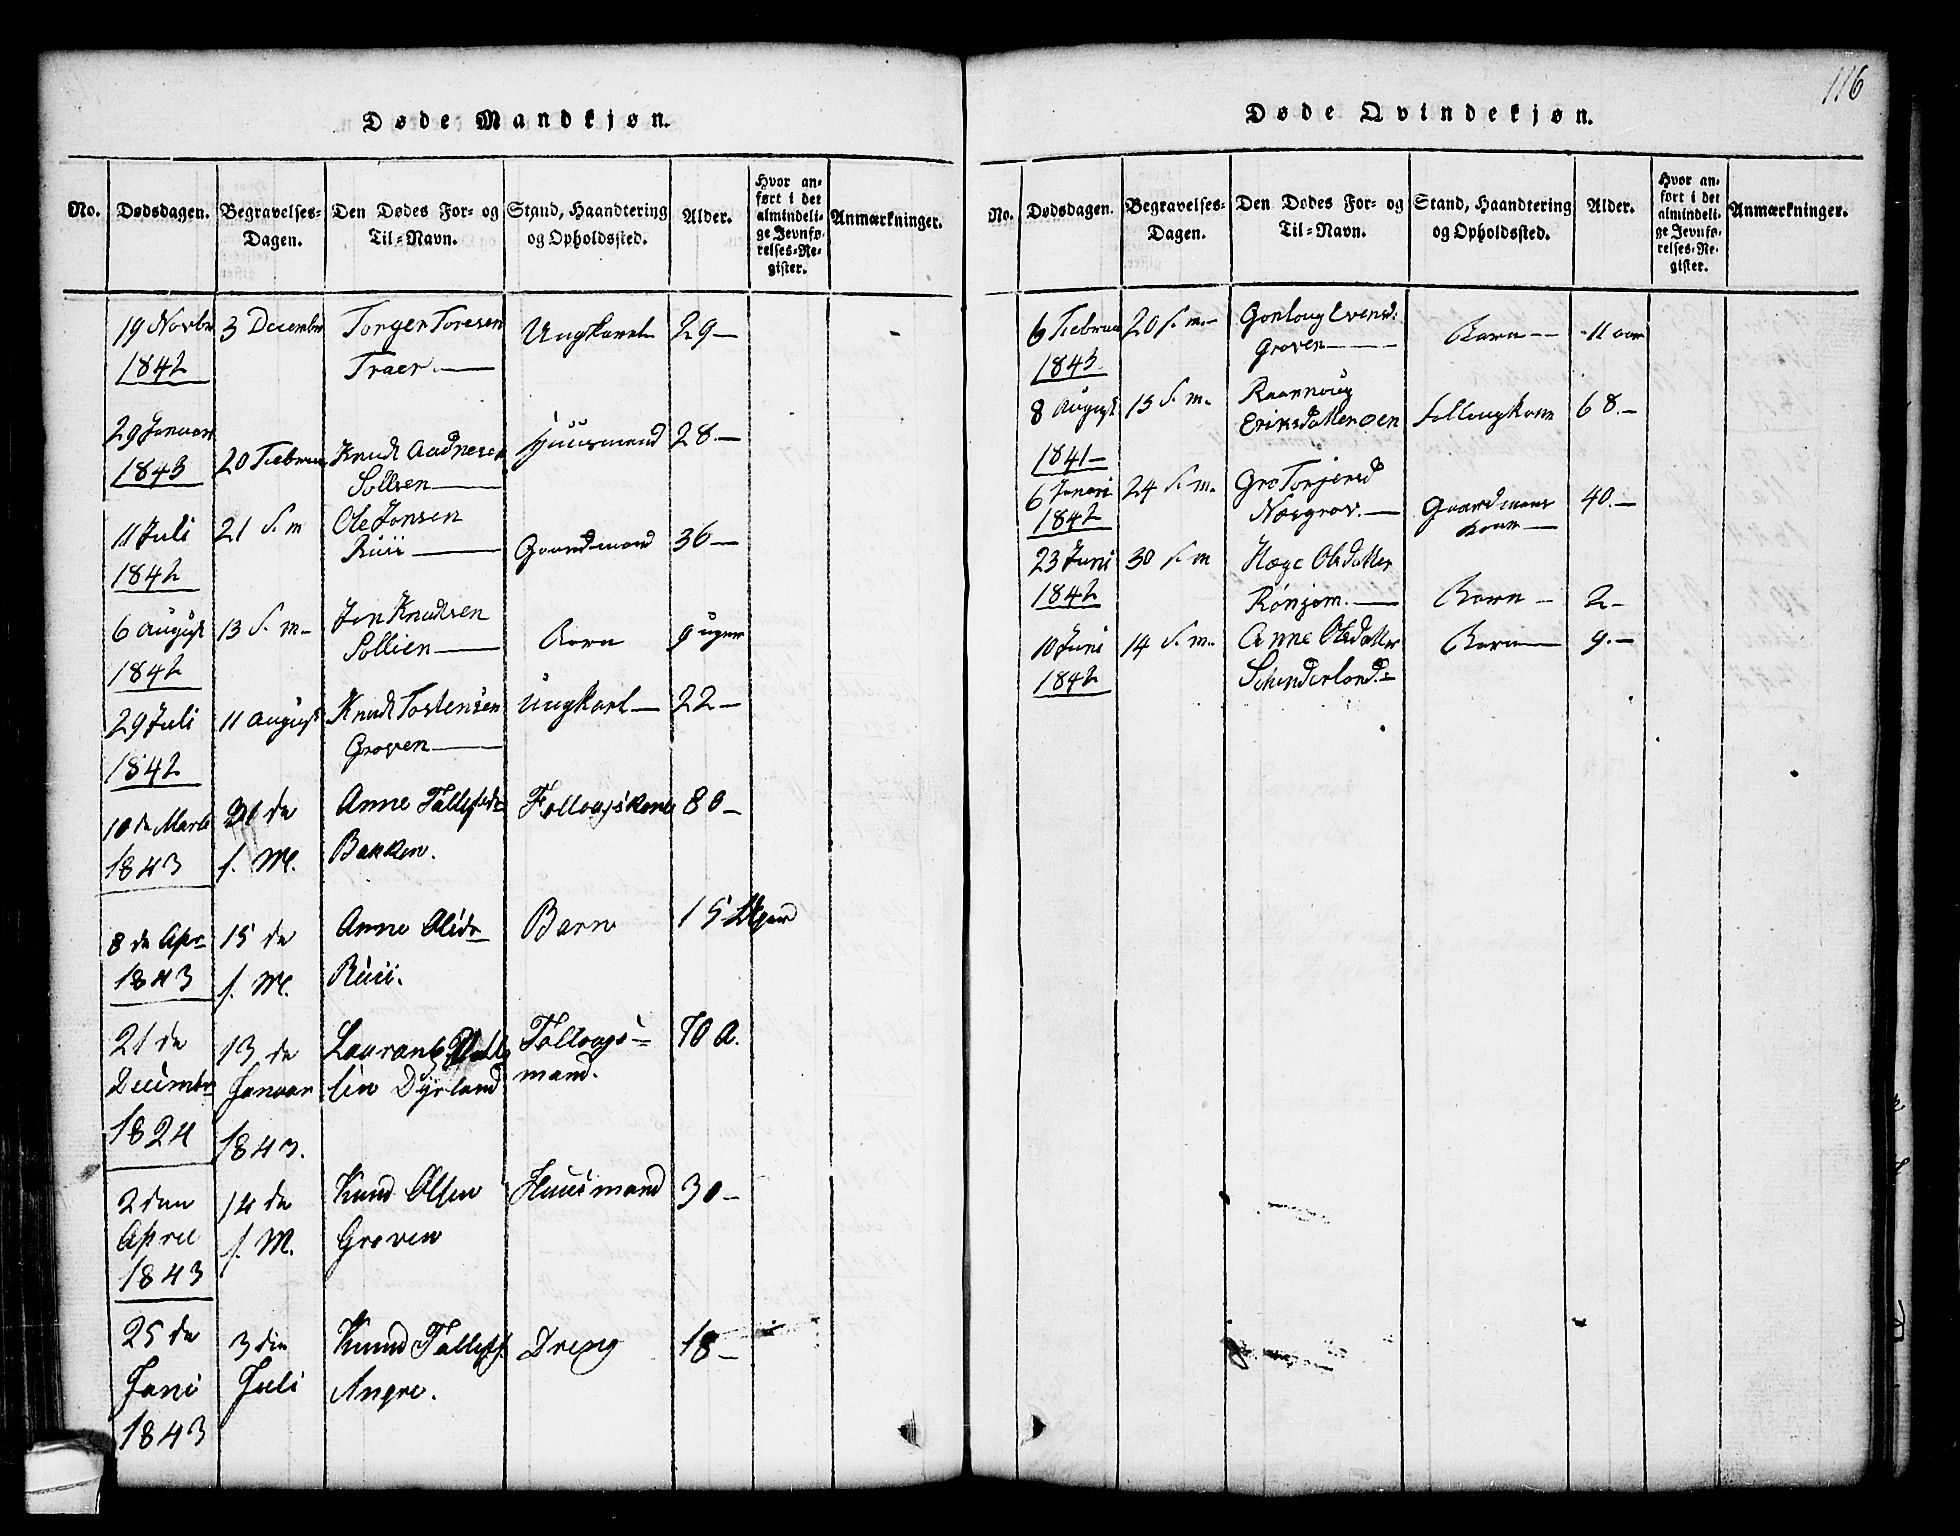 116
Døde Mandkjøn.
No. Dødsdagen. Begravelses-Dagen. Den Dødes For- og Til-Navn. Stand, Haandtering og Opholdssted. Alder. Hvor anført i det almindelige Jevnførelses-Register. Anmærkninger.
19 Novbr 3 December Torger Toresen Ungkarl 29 —
1842 Traer. —
29 Januar Huusmand 28 —
1843 20 Februa Knudt Aadnesen
Sollien —
11 Juli 21 s. m Ole Jonsen
1842 Ruii — Gaardmand 36 —
6 August 13 s. m — Jon Knudsen
1842 Sollien — Barn 9 uger
29 Juli 11 August Knudt Tostensen Ungkarl — 22 —
1842 Groven —
10 de Marts 21 de Anne Tallefsdr Follougskone 80 —
1843 s. M. Bakken.
8 de Apr 15 de Anne Olsdr Barn 15 Uger
1843 s. M. Ruii.
21 de 13 de Laurants Tollougs- 70 A.
Decimbr Januar sen Dyrland mand.
1824 1843.
2 den 14 de Knud Olsen Huusmand 30 —
April s. M. Groven
1843
25 de 3 die Knud Tallefs. Dreng 18 —
Juni Juli
1843
Døde Qvindekjøn.
No. Dødsdagen. Begravelses-Dagen. Den Dødes For- og Til-Navn. Stand, Haandtering og Opholdssted. Alder. Hvor anført i det almindelige Jevnførelses-Register. Anmærkninger.
6 Februa 20 s. m — Gonloug Evensd: Barn — 11 aar
1843. Groven —
8 August 13 s. m. Raannoug
Eriksdatter Oen Follougkone 68. —
1841 —
6 Januari 24 s. m. Gro Torjersd
1842 Næsgrav. — Gaardmans kone — 40. —
23 Juni 30 s. m Hæge Olsdatter
1842 Rønjom. — Barn — 2 —
10 Juni 14 s. m. Anne Olsdatter Barn — 9. —
1842 Schinderland. —